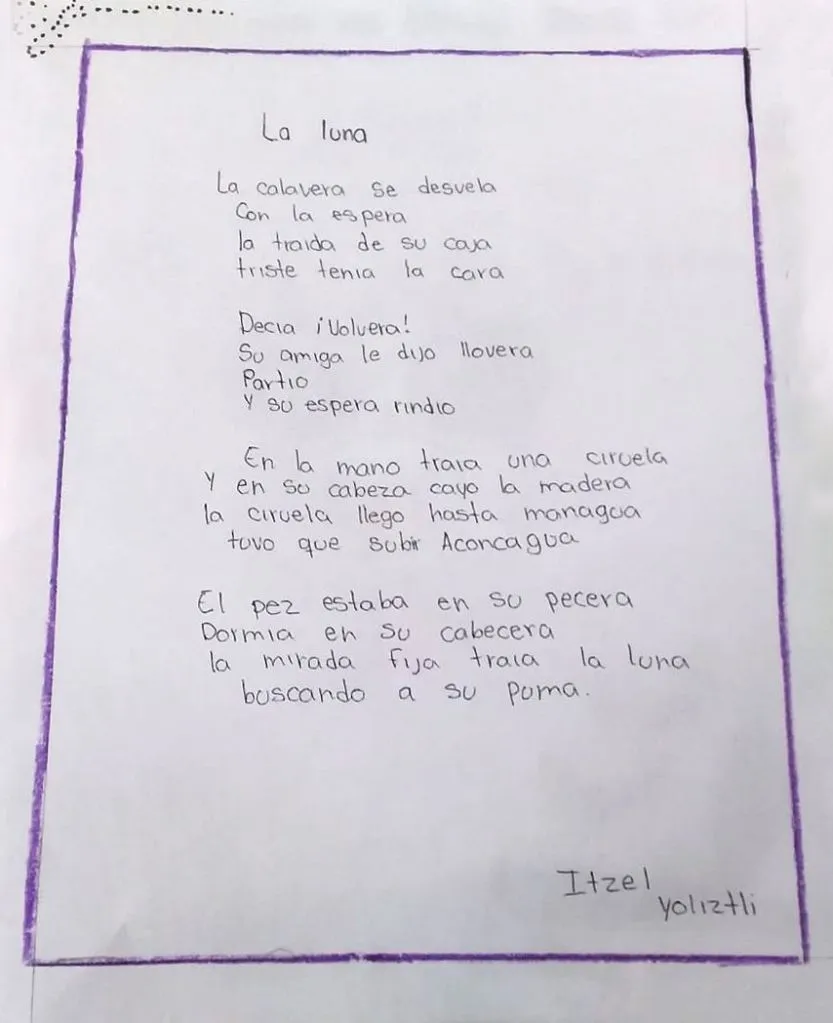 La luna
La calavera se desvela
Con la espera
la traida de su caja
triste tenia la cara
Decia ¡Volvera!
Su amiga le dijo llovera
Partio
Y su espera rindio
En la mano traia una ciruela
Y en su cabeza cayo la madera
la ciruela llego hasta managua
tuvo que subir Aconcagua
El pez estaba en su pecera
Dormia en su cabecera
la mirada fija traia la luna
buscando a su puma.
Itzel
yoliztli